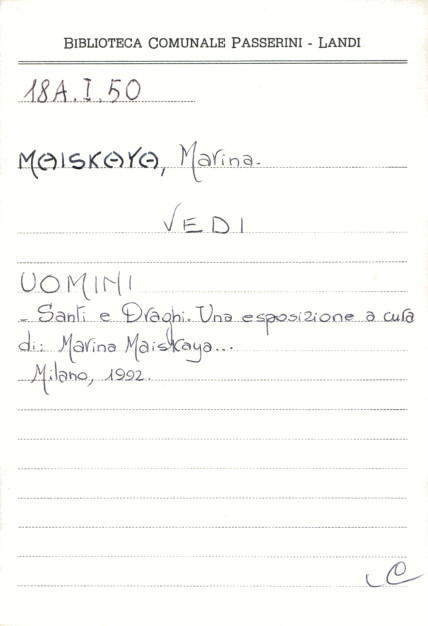 BIBLIOTECA COMUNALE PASSERINI - LANDI
18A.I.50
MAISKAYA, Marina.
VEDI
UOMINI
- Santi e Draghi. Una esposizione a cura
di: Marina Maiskaya...
Milano, 1992.